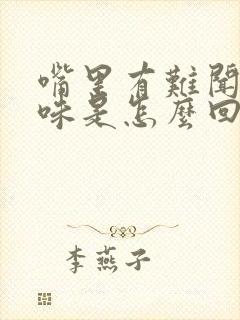 嘴里有難聞
味是怎麼回
李燕子